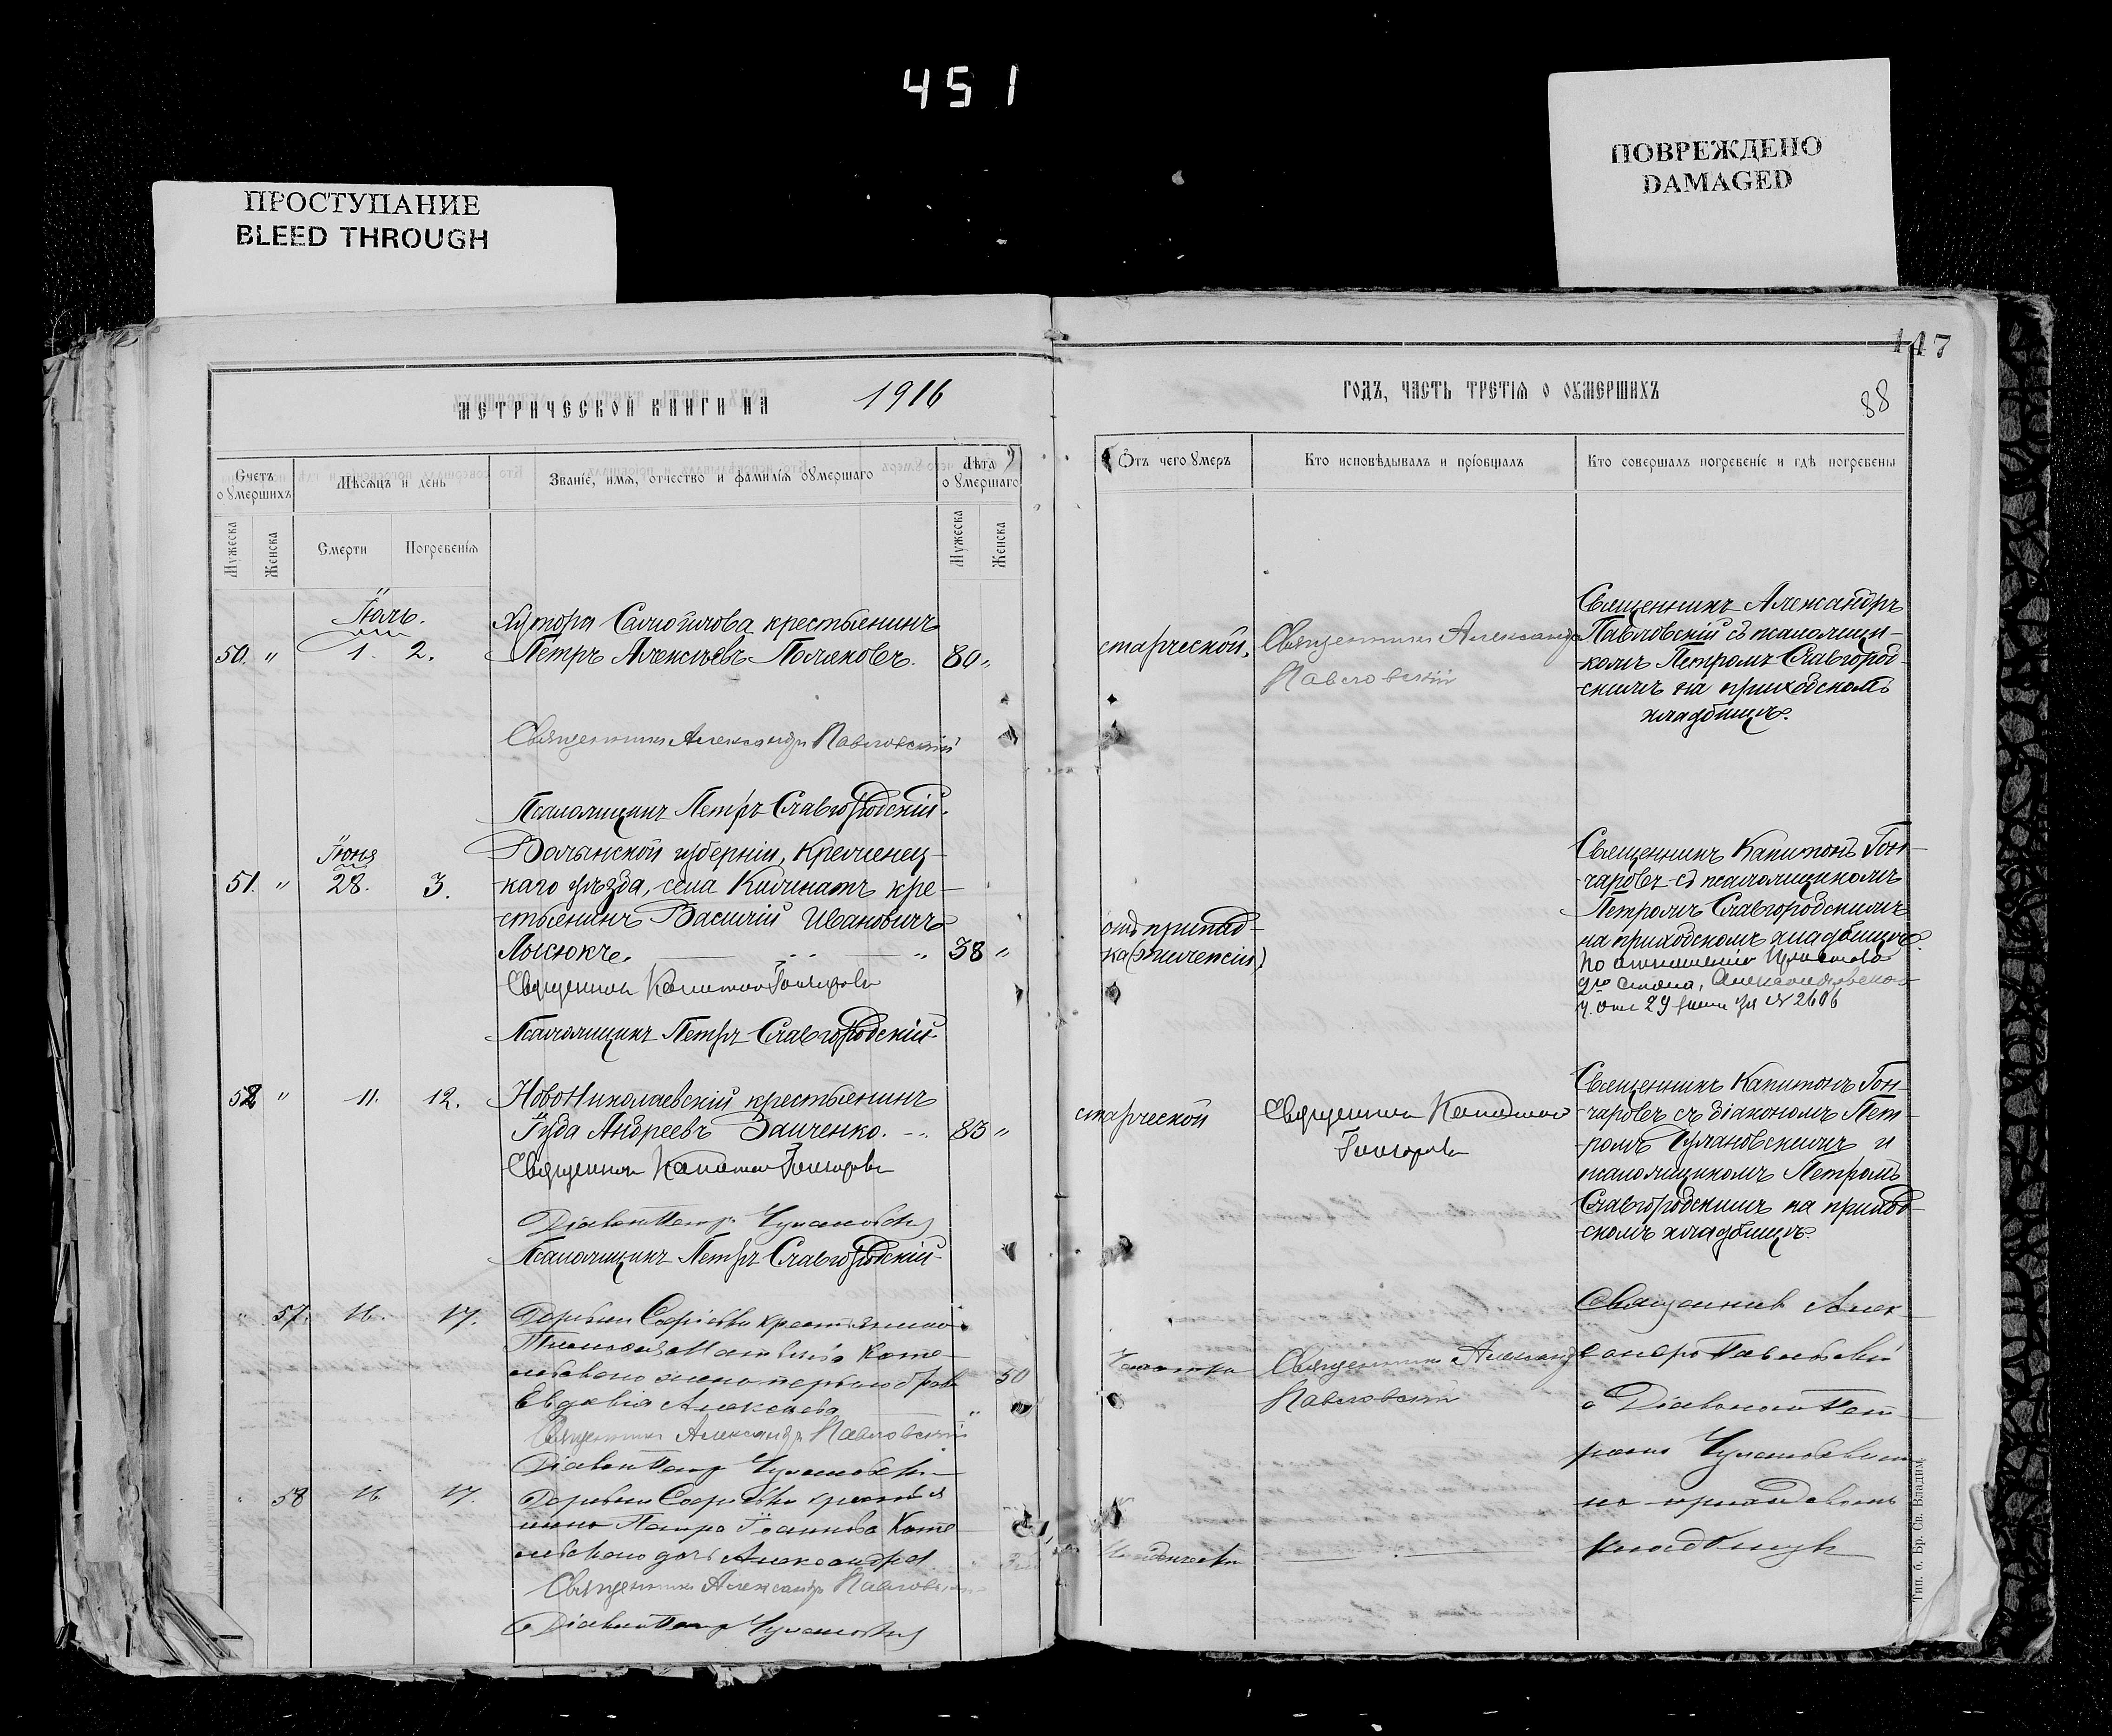 451
ПРОСТУПАНИЕ
BLEED THROUGH
ПОВРЕЖДЕНО
DAMAGED
147
МЕТРИЧЕСКОЙ КНИГИ НА 1916
ГОДЪ, ЧАСТЬ ТРЕТІЯ О ОУМЕРШИХЪ
88
Счетъ оумершихъ
Мѣсяцъ и день
Званіе, имя, отчество и фамилія оумершаго
Лѣта оумершаго
Отъ чего умеръ
Кто исповѣдывалъ и пріобщалъ
Кто совершалъ погребеніе и гдѣ погребены
Мужеска
Женска
Смерти
Погребенія
Мужеска
Женска
Іюль.
50. " 1. 2.
Хутора крестьянинъ
Петръ Алексѣевъ Поляковъ. 80 "
Священникъ Александръ Павловскій
Псаломщикъ Петръ Славгородскій.
старческой.
Священникъ Александръ
Павловскій
Священникъ Александръ
Павловскій съ псаломщи-
комъ Петромъ Славгород-
скимъ на приходскомъ
кладбищѣ.
Іюня
51. " 28. 3.
Волынской губерніи, Кременец-
каго уѣзда, села кре-
стьянинъ Василій Ивановичъ
Лысюкъ. 38 "
Священникъ Капитонъ Гончаровъ
Псаломщикъ Петръ Славгородскій
отъ припад-
ка (эпилепсіи).
Священникъ Капитонъ Гон-
чаровъ съ псаломщикомъ
Петромъ Славгородскимъ
на приходскомъ кладбищѣ.
По отношенію Пристава
2го стана, Александровскаго
у. отъ 29 іюня за № 2606
52 " 11. 12.
Новониколаевскій крестьянинъ
Іуда Андреевъ Заиченко. 83 "
Священникъ Капитонъ Гончаровъ
Діаконъ Петръ Чулановскій
Псаломщикъ Петръ Славгородскій
старческой
Священникъ Капитонъ
Гончаровъ
Священникъ Капитонъ Гон-
чаровъ съ діакономъ Пет-
ромъ Чулановскимъ и
псаломщикомъ Петромъ
Славгородскимъ на приход-
скомъ кладбищѣ.
" 57. 16. 17.
Деревни Софіевки крестьянина
Коте-
жена
Евдокія Алексѣева 50
Священникъ Александръ Павловскій
Діаконъ Петръ Чулановскій
Чахотка
Священникъ Александръ
Павловскій
Священникъ Алек-
сандръ Павловскій
съ Діакономъ Пет-
ромъ Чулановскимъ
на приходскомъ
кладбищѣ
" 58 16. 17.
Деревни Софіевки крестья-
нина Петра Іоаннова Коте-
дочь Александра
Священникъ Александръ Павловскій
Діаконъ Петръ Чулановскій
Тип. б. Бр. Св. Владим.